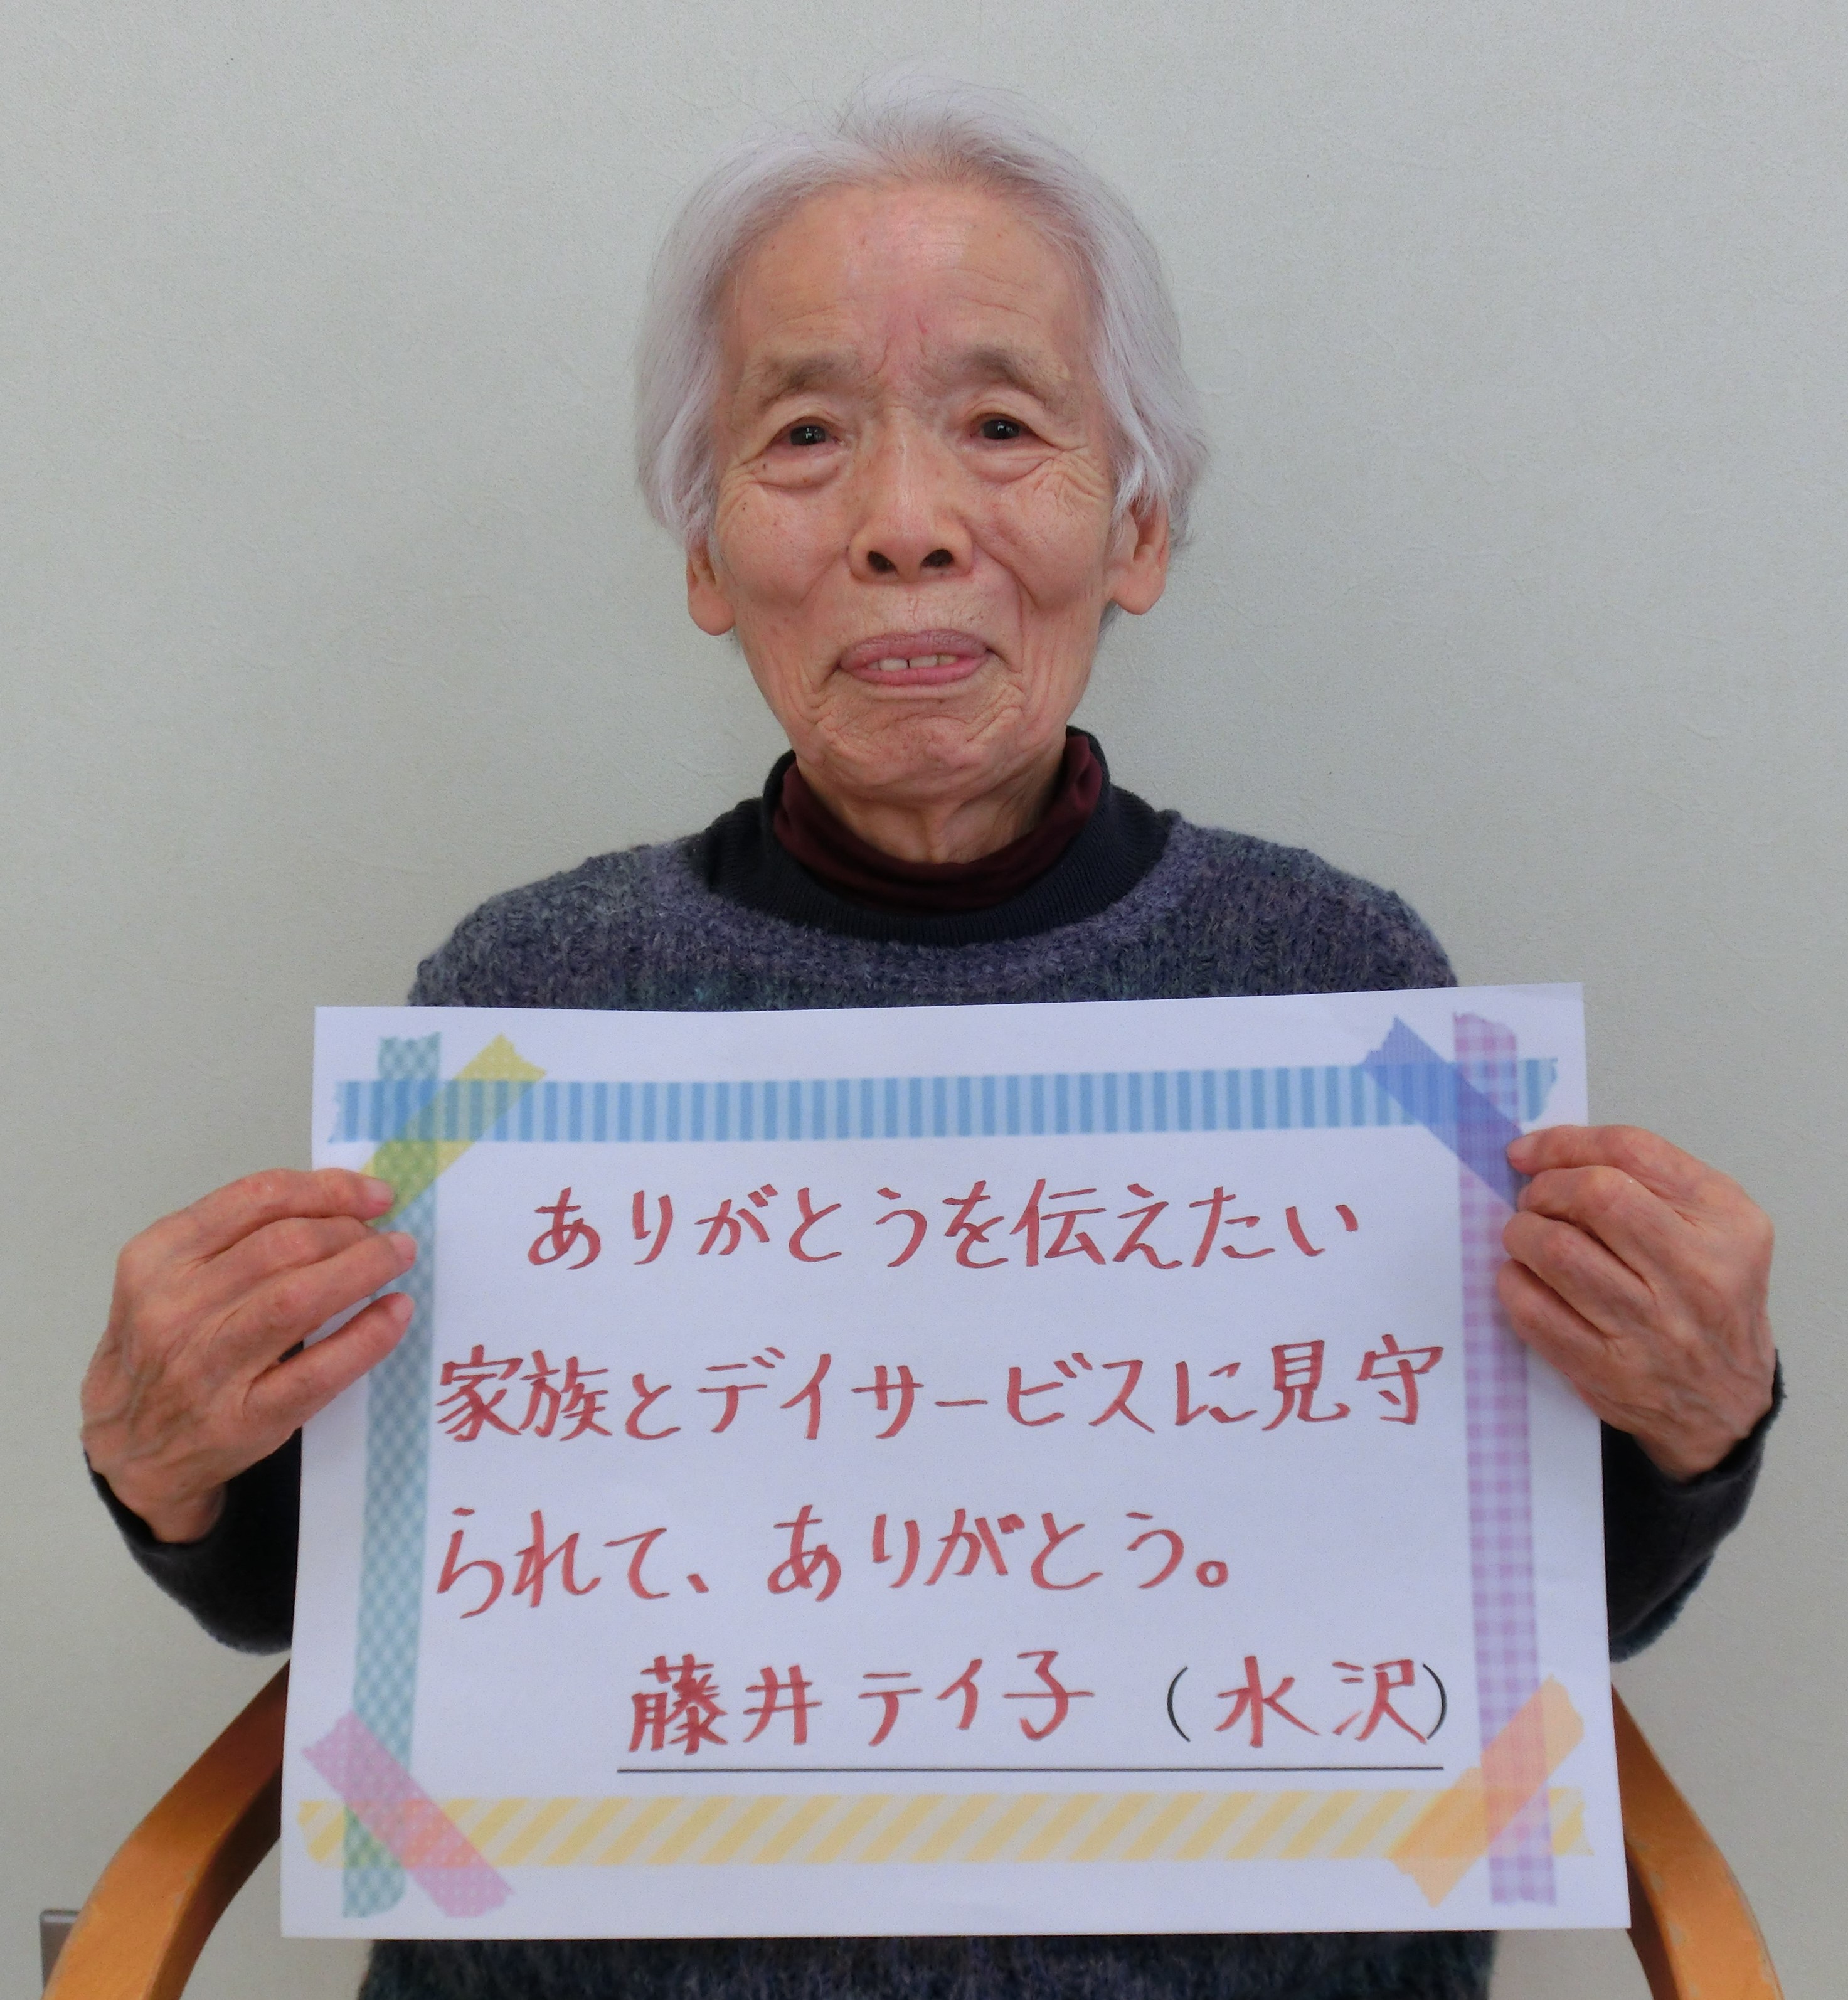 ありがとうを伝えたい
家族とデイサービスに見守
られて、ありがとう。
藤井テイ子（水沢）